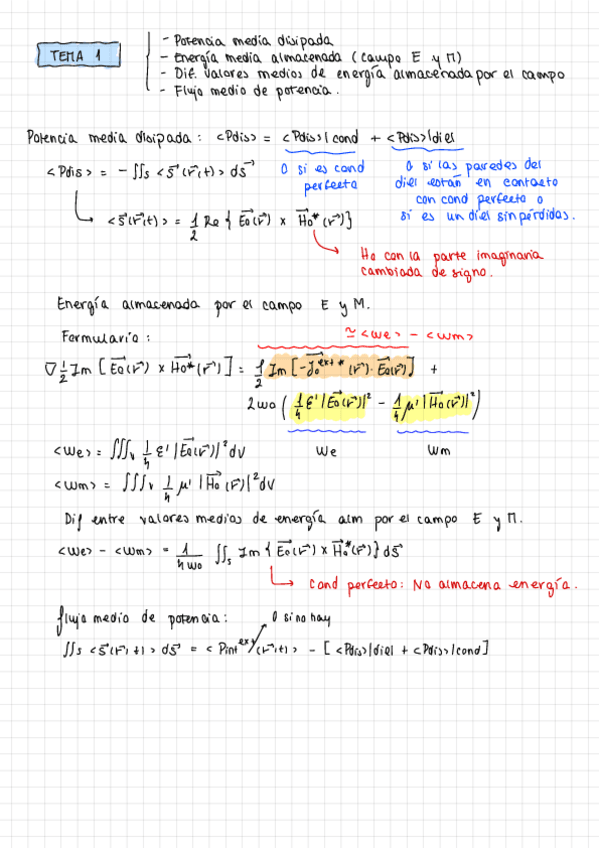 TEMA 1
- Potencia media disipada
- Energía media almacenada (campo E y M)
- Dif. valores medios de energía almacenada por el campo
- Flujo medio de potencia.
Potencia media disipada: <Pdis> = <Pdis>|cond + <Pdis>|diel
<Pdis> = - ∬s <S⃗(r⃗,t)> ds⃗
0 si es cond
perfecto
0 si las paredes del
diel están en contacto
con cond perfecto o
si es un diel sin pérdidas.
<S⃗(r⃗,t)> = 1/2 Re { E⃗o(r⃗) × H⃗o*(r⃗)}
Ho con la parte imaginaria
cambiada de signo.
Energía almacenada por el campo E y M.
Formulario:
≃ <we> - <wm>
∇ 1/2 Im [E⃗o(r⃗) × H⃗o*(r⃗)] = 1/2 Im [-J⃗o^ext*(r⃗)·E⃗o(r⃗)] +
2wo (1/4 ε'|E⃗o(r⃗)|² - 1/4 μ'|H⃗o(r⃗)|²)
<we> = ∭v 1/4 ε' |E⃗o(r⃗)|² dV
We
Wm
<wm> = ∭v 1/4 μ' |H⃗o(r⃗)|² dV
Dif entre valores medios de energía alm por el campo E y M.
<we> - <wm> = 1/4wo ∬s Im { E⃗o(r⃗) × H⃗o*(r⃗)} ds⃗
Cond perfecto: No almacena energía.
flujo medio de potencia:
0 si no hay
∬s <S⃗(r⃗,t)> ds⃗ = <Pint^ext(r⃗,t)> - [<Pdis>|diel + <Pdis>|cond]